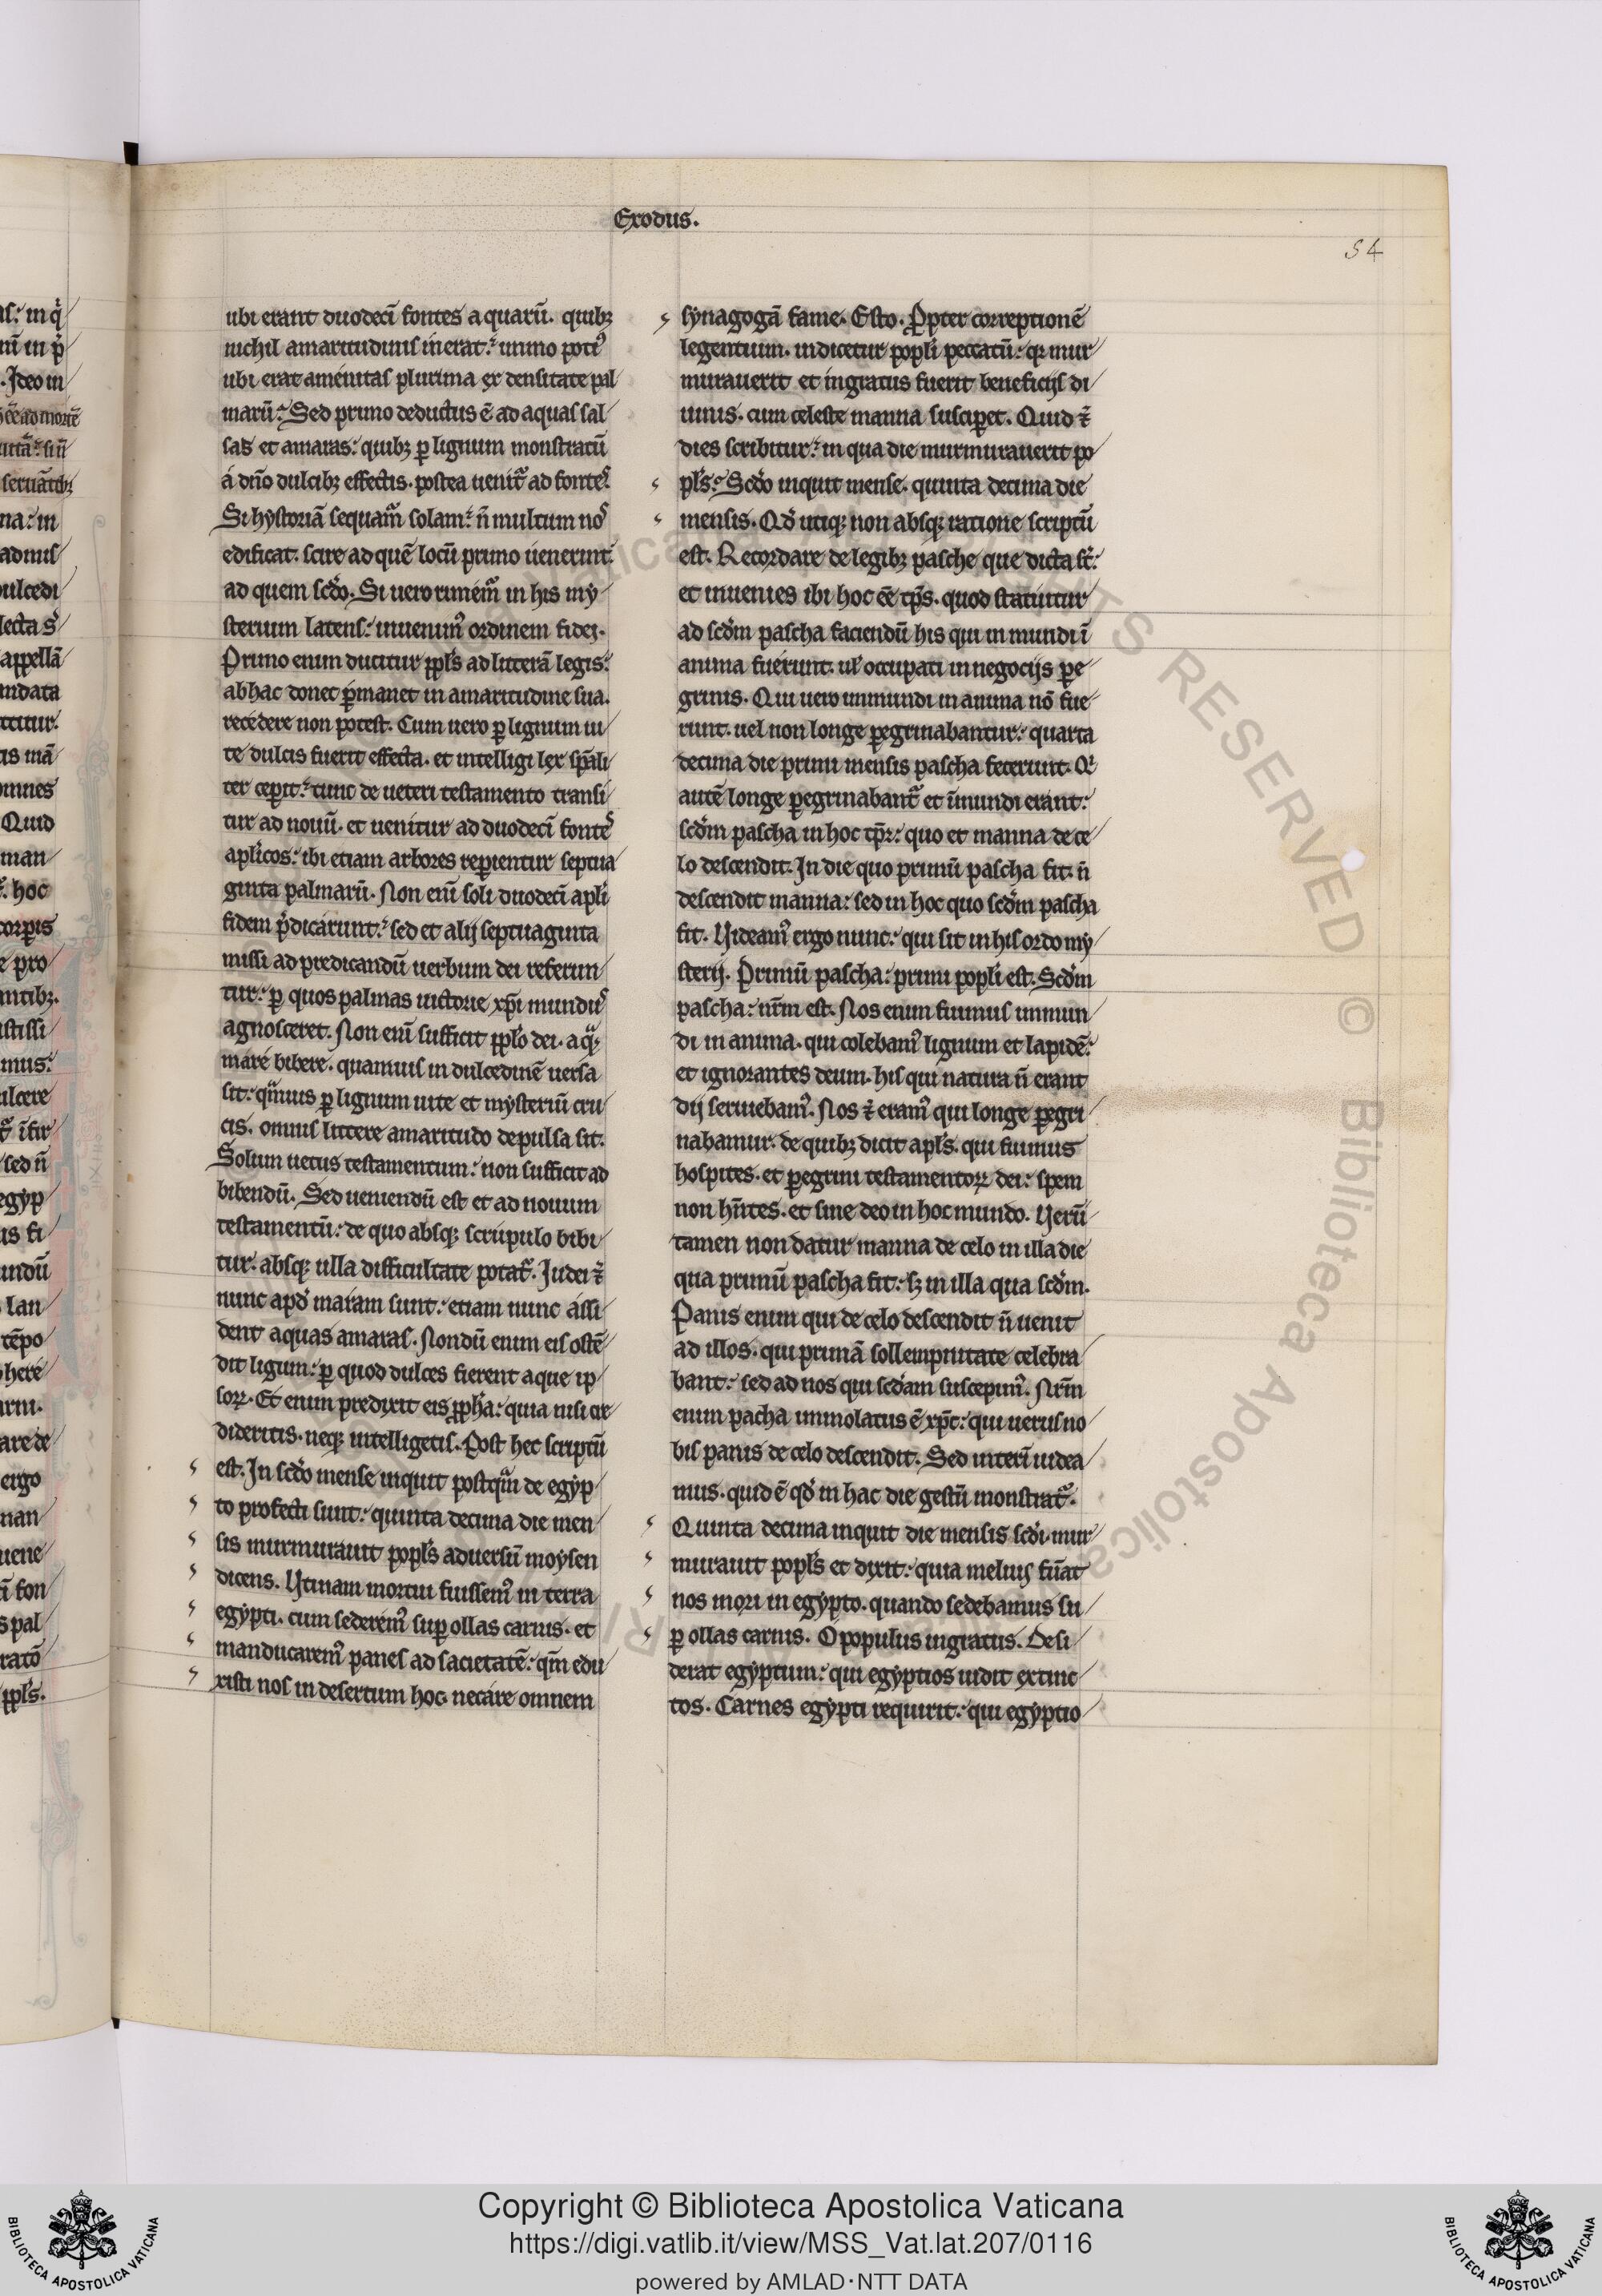 Exodus.
54
ubi erant duodecĩ fontes aquarũ. quibꝫ
nichil amaritudinis inerat: immo poti᷒
ubi erat amenitas plurima ex densitate pal
marũ: Sed primo deductus ẽ ad aquas sal
sas et amaras: quibꝫ ꝑ lignum monstratũ
a dño dulcibꝫ effectis. postea uenit᷑ ad fontes.
Si hystoriã sequam᷑ solam: ñ multum nos
edificat. scire ad quẽ locũ primo uenerunt.
ad quem scdo. Si uero rimem᷑ in his my
sterium latens: inuenim᷒ ordinem fidei.
Primo enim ducitur ppls ad litterã legis:
ab hac donec ꝑmanet in amaritudine sua.
recedere non potest. Cum uero ꝑ lignum ui
te dulcis fuerit effecta. et intelligi lex spãli
ter ceperit: tunc de ueteri testamento transi
tur ad nouũ. et uenitur ad duodecĩ fontes
aplicos: ibi etiam arbores reperientur septua
ginta palmarũ. Non enĩ soli duodecĩ apli
fidem p̃dicarunt: sed et alij septuaginta
missi ad predicandũ uerbum dei referun
tur: ꝑ quos palmas uictorie xp̃i mundus
agnosceret. Non enĩ sufficit pplo dei. aq̃
mare bibere. quamuis in dulcedinẽ uersa
sit: qm̃uis ꝑ lignum uite et mysteriũ cru
cis. omnis littere amaritudo depulsa sit.
Solum uetus testamentum: non sufficit ad
bibendũ. Sed ueniendũ est et ad nouum
testamentũ: de quo absqꝫ scrupulo bibi
tur. absqꝫ ulla difficultate potat᷑. Judei ⁊̃
nunc apd maram sunt: etiam nunc assi
dent aquas amaras. Nondũ enim eis ostẽ
dit ligum: ꝑ quod dulces fierent aque ip
soꝝ. Et enim predixit eis ppha: quia nisi cre
dideritis. neqꝫ intelligetis. Post hec scriptũ
est. In scdo mense inquit postqm̃ de egyp
to profecti sunt: quinta decima die men
sis murmurauit popls aduersũ moysen
dicens. Utinam mortui fuissem᷒ in terra
egypti. cum sederem᷒ suꝑ ollas carnis. et
manducarem᷒ panes ad sacietatẽ: qm̃ edu
xisti nos in desertum hoc. necare omnem
synagogã fame. Esto. Ꝓpter correptionẽ
legentium. indicetur popli peccatũ: qꝛ mur
murauerit et ingratus fuerit beneficijs di
uinis. cum celeste manna susciperet. Quid ⁊̃
dies scribitur: in qua die murmurauerit po
pls: Scdo inquit mense. quinta decima die
mensis. Qd utiqꝫ non absqꝫ ratione scriptũ
est. Recordare de legibꝫ pasche que dicta st:
et inuenies ibi hoc ẽe tp̃s. quod statuitur
ad scdm pascha faciendũ his qui inmundi ĩ
anima fuerunt. ul occupati in negocijs pe
grinis. Qui uero inmundi in anima nõ fue
runt. uel non longe ꝑegrinabantur: quarta
decima die primi mensis pascha fecerunt. Qi
autẽ longe ꝑegrinabant᷑ et ĩmundi erant:
scdm pascha in hoc tp̃r: quo et manna de ce
lo descendit. In die quo primũ pascha fit. ñ
descendit manna: sed in hoc quo scdm pascha
fit. Uideam᷒ ergo nunc: qui sit in his ordo my
sterij. Primũ pascha: primi popli est. Scdm
pascha: nrm̃ est. Nos enim fuimus inmun
di in anima. qui colebam᷒ lignum et lapidẽ:
et ignorantes deum. his qui natura ñ erant
dij seruiebam᷒. Nos ⁊̃ eram᷒ qui longe ꝑegri
nabamur. de quibꝫ dicit apls. qui fuimus
hospites. et ꝑegrini testamentoꝝ dei: spem
non hñtes. et sine deo in hoc mundo. Uerũ
tamen non datur manna de celo in illa die
qua primũ pascha fit: sꝫ in illa qua scdm.
Panis enim qui de celo descendit ñ uenit
ad illos. qui primã sollempnitate celebra
bant: sed ad nos qui scdam suscepim᷒. Nrm̃
enim pacha immolatus ẽ xp̃c: qui uerus no
bis panis de celo descendit. Sed interĩ uidea
mus. quid ẽ qd in hac die gestũ monstrat᷑.
Quinta decima inquit die mensis scdi. mur
murauit popls et dixit: quia melius fuãt
nos mori in egypto. quando sedebamus su
ꝑ ollas carnis. O populus ingratus. Desi
derat egyptum: qui egyptios uidit extinc
tos. Carnes egypti requirit: qui egyptio
Copyright © Biblioteca Apostolica Vaticana
https://digi.vatlib.it/view/MSS_Vat.lat.207/0116
powered by AMLAD·NTT DATA